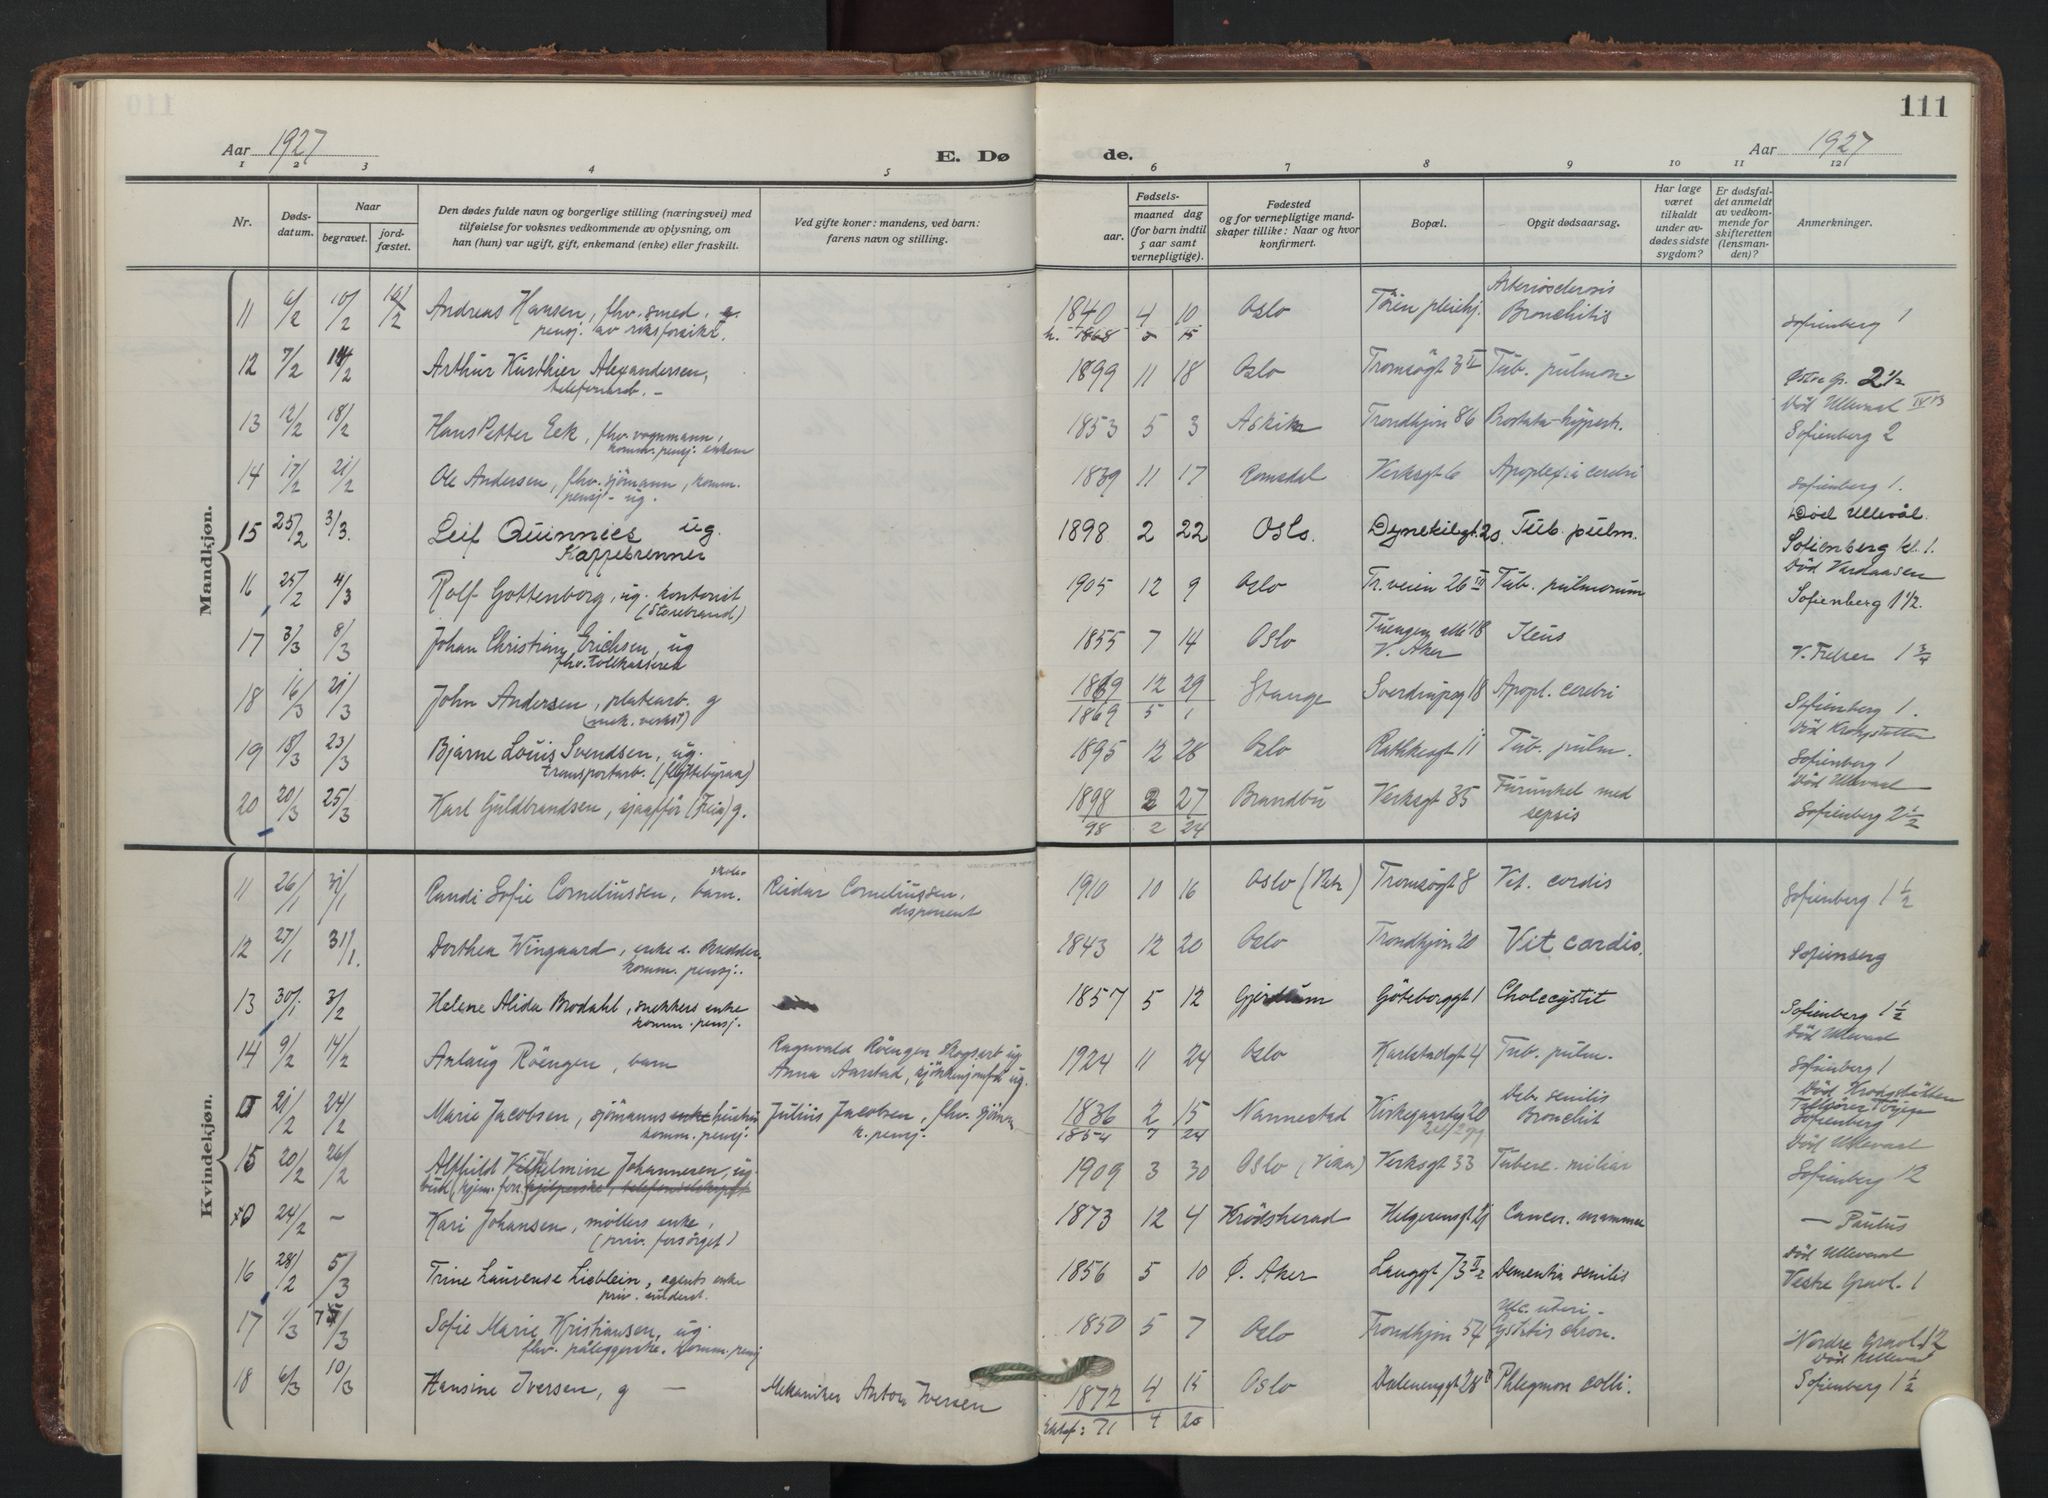 111
Aar 1927
E. Dø
de.
Aar 1927
1 2 3 4 5 6 7 8 9 10 11 12
Nr.
Døds-
datum.
Naar
begravet.
jord-
fæstet.
Den dødes fulde navn og borgerlige stilling (næringsvei) med
tilføielse for voksnes vedkommende av oplysning, om
han (hun) var ugift, gift, enkemand (enke) eller fraskilt.
Ved gifte koner: mandens, ved barn:
farens navn og stilling.
Fødsels-
aar.
maaned dag
(for barn indtil
5 aar samt
vernepligtige).
Fødested
og for vernepligtige mand-
skaper tillike: Naar og hvor
konfirmert.
Bopæl.
Opgit dødsaarsag.
Har læge
været
tilkaldt
under av-
dødes sidste
sygdom?
Er dødsfal-
det anmeldt
av vedkom-
mende for
skifteretten
(lensman-
den)?
Anmerkninger.
Mandkjøn.
11 6/2 10/2 10/2 Andreas Hansen, fhv. smed. g.
pensj. av
1840 4 10 Oslo Arteriosclerosis
Bronchitis Sofienberg 1
h. 1868
12 7/2 14/2 Arthur Alexandersen,
telefonarb. –
1899 11 18 Oslo Tromsøgt 3 II Tub. pulmon. Østre Gr. 2 1/2
13 12/2 18/2 Hans Petter Eek, fhv. vognmann,
komm. pensj. enkem
1853 5 3 Askim Trondhjsv 86 Prostata-hypertr. Død Ullevaal
Sofienberg 2
14 17/2 21/2 Ole Andersen, fhv. sjömann, komm.
pensj – ug.
1839 11 17 Romsdal Verksgt 6 Apoplexia cerebri Sofienberg 1.
15 25/2 3/3. Leif Quinnies ug.
Kaffebrenner
1898 2 22 Oslo. Dynekilgt. 20. Tub. pulm. Død Ullevål.
Sofienberg kl. 1.
16 25/2 4/3 Rolf Gottenborg, ug. kontorist
(Storebrand)
1905 12 9 Oslo Tr. veien 26 Tub. pulmonum Død Vardaasen
Sofienberg 1 1/2.
17 3/3 8/3 Johan Christian Erichsen, ug
fhv. tollkasserer
1855 7 14 Oslo Tuengen alle 18
V. Aker Ileus V. Frelser 1 3/4
18 16/3 21/3 John Andersen, platearb. g
(mek. verkst)
1869 12 29 Stange Sverdrupsg 18 Apopl. cerebri Sofienberg 1.
1869 5 1
19 18/3 23/3 Bjarne Louis Svendsen, ug.
transportarb. (flyttebyraa)
1895 12 28 Oslo Rathkesgt 11 Tub. pulm. Død Krohgstøtten
Sofienberg 1
20 20/3 25/3 Karl Guldbrandsen, sjaafför (Freia) g.
1898 2 27 Brandbu Verksgt 35 Furunkel med
sepsis Død Ullevaal
Sofienberg 2 1/2
98 2 24
Kvindekjøn.
11 26/1 31/1 Randi Sofie Corneliussen, skole-
barn. Reidar Corneliussen,
disponent
1910 10 16 Oslo (Petr) Tromsøgt 8 Vit. cordis Sofienberg 1 1/2
12 27/1 31/1. Dorthea Wingaard, enke e.
komm. pensj.
1843 12 20 Oslo Trondhjsv 20 Vit cordis. Sofienberg
13 30/1 3/2 Helene Alida Brodahl, snekkers enke
komm. pensj.
1857 5 12 Gjerdrum Göteborggt 1 Cholecystit Sofienberg 1 1/2
14 9/2 14/2 Anlaug Röengen, barn Ragnvald Röengen skogsarb ug.
Anna Aarstad, kjökkenjomfr ug.
1924 11 24 Oslo Karlstadgt 4 Tub. pulm. Død Ullevaal
Sofienberg 1
0 21/2 24/2 Marie Jacobsen, sjömanns enke hustru
komm. pensj. Julius Jacobsen, fhv. sjöm
k. pensj.
1836 2 15 Nannestad Kirkegaardsg 20 Deb. senilis
Bronchit Død Krohgstøtten
Sofienberg
1854 7 24
15 20/2 26/2 Alfhild Vilhelmine Johannesen, ug.
1909 3 30 Oslo (Vika) Verksgt 33 Tuberc. miliar Død Ullevaal
Sofienberg 12
0 24/2 – Kari Johansen, möllers enke,
(priv. forsörget)
1873 12 4 Krödsherad Helgesensgt 21 Cancer. mammae – Paulus
16 28/2 5/3 Trine Laurense Lieblein, agents enke
priv. underst.
1856 5 10 Ø. Aker Langgt 73 II Dementia senilis Død Ullevaal
Vestre Gravl. 1
17 1/3 7/3 Sofie Marie Kristiansen, ug.
fhv. påleggerske. komm. pensj
1850 5 7 Oslo Trondhjsv 54 Ulc. uteri –
Cystitis chron. Nordre Gravl 12
18 6/3 10/3 Hansine Iversen, g – Mekaniker Anton Iversen
1872 4 15 Oslo Dælenenggt 28 Phlegmon colli. Død Ullevaal
Sofienberg 1 1/2
71 4 20